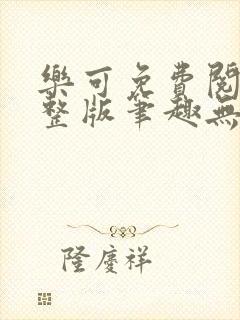 樂可免費閱
整版筆趣無
隆慶祥